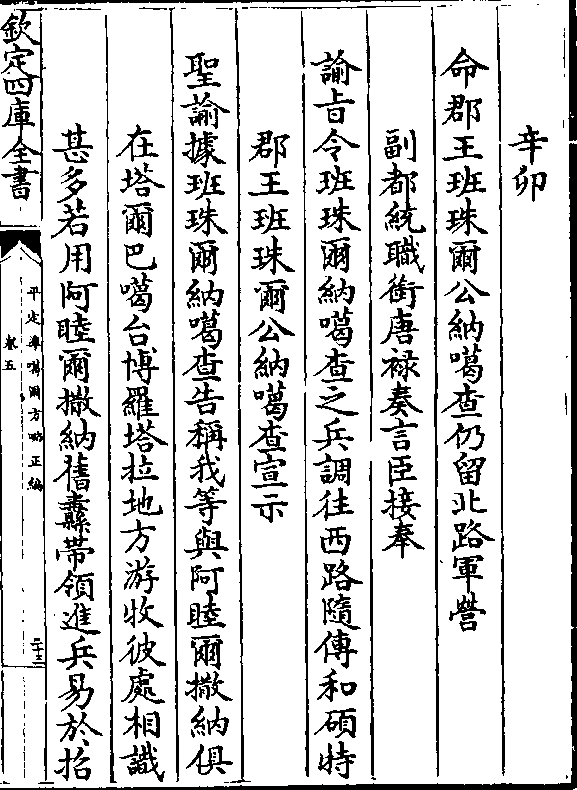 辛卯
命郡王班珠爾公納噶查仍留北路軍營
副都統職銜唐祿奏言臣接奉
諭旨令班珠爾納噶查之兵調往西路隨傳和碩特
郡王班珠爾公納噶查宣示
聖諭據班珠爾納噶查告稱我等與阿睦爾撒納俱
在塔爾巴噶台博羅塔拉地方游牧彼處相識
甚多若用阿睦爾撒納舊纛帶領進兵易於招
欽定四庫全書
平定準噶爾方略正編
卷五
二十三